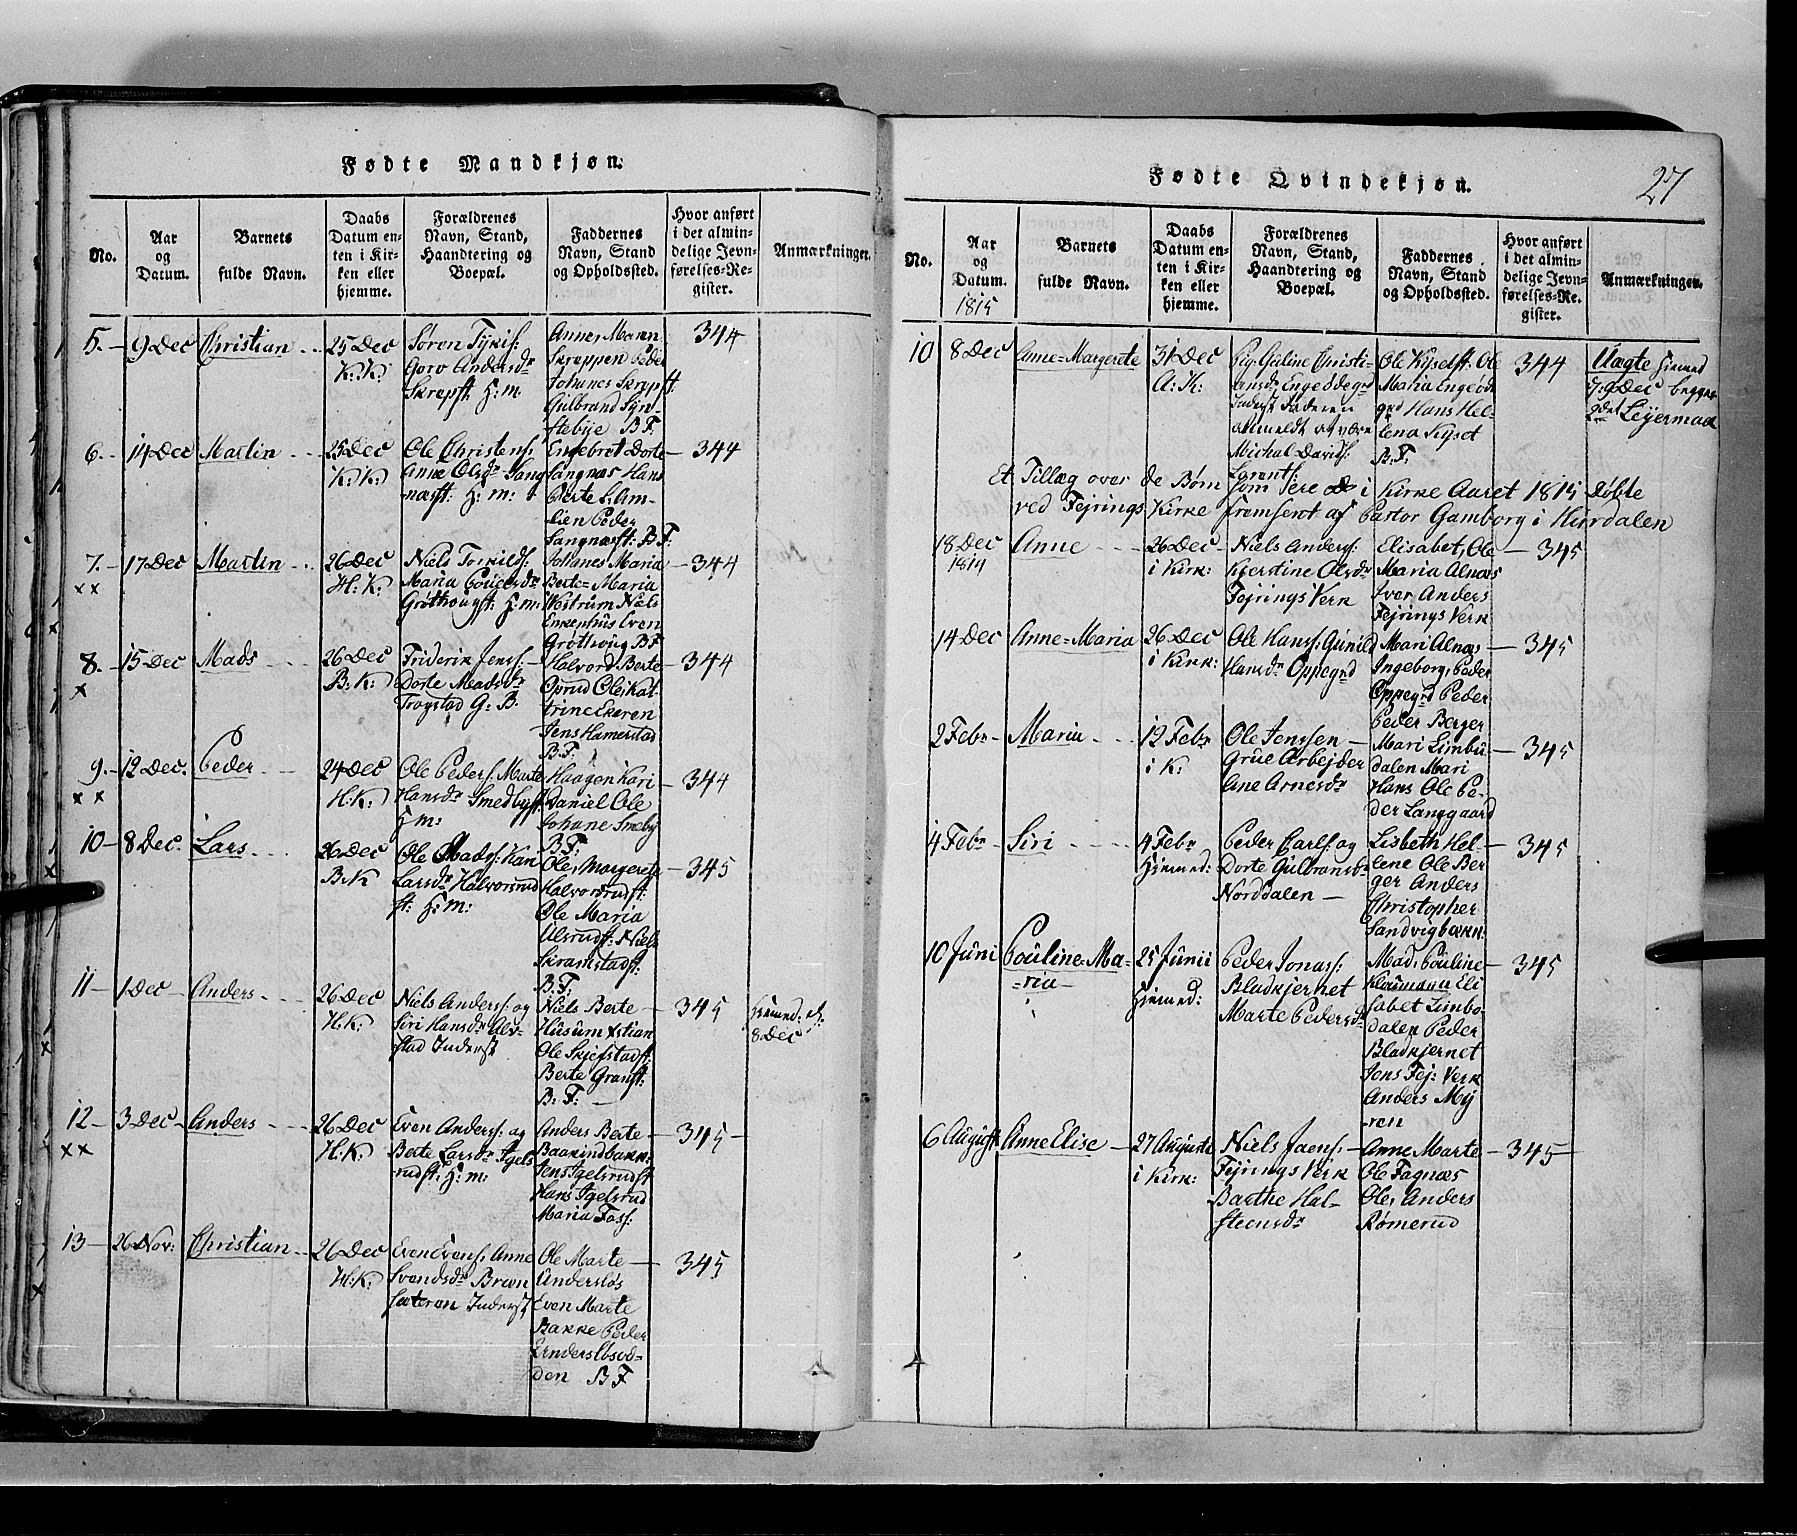 Fødte Mandkjøn.
No.
Aar
og
Datum.
Barnets
fulde Navn.
Daabs
Datum en-
ten i Kir-
ken eller
hjemme.
Forældrenes
Navn, Stand,
Haandtering og
Boepæl.
Faddernes
Navn, Stand
og Opholdssted.
Hvor anført
i det almin-
delige Jevn-
førelses-Re-
gister.
Anmærkninger.
5. 9 Dec Christian 25 Dec
K: K:
Søren
Goro Andersdr
H: m.
Anne, Maren
Skreppen Peder
Johanes
Gulbrand
B F:
344
6. 14 Dec Martin 25 Dec
K: K:
Ole Christens:
Anne Olsdr Sang
næsst: H: m:
Engebret Dorte
Sangnæs Hans
Berte
lien Peder
Sangnæsst: B F:
344
7. 17 Dec Martin 26 Dec
xx H: K:
Niels
Maria
H: m:
Johanes Maria
Berte = Maria
Niels
Even
B F
344
8. 15 Dec Mads 26 Dec
x B: K:
Friderik Jens:
Dorte Madsdr
Trogstad G: B.
Halvord Berte
Oprud Ole Kat-
trine Ekeren
Jens Hamerstad
B: F:
344
9. 12 Dec. Peder 24 Dec
xx H: K:
Ole Peders: Marte
Hansdr
H m:
Haagen Kari
Daniel Ole
Johane Smeby
B: F:
344
10 8 Dec: Lars 26 Dec
B: K
Ole Mads: Kari
Larsdr Halvorsrud
st: H: m:
Ole, Margereta
Halvorsrudst:
Ole Maria
Alsrudst: Niels
Skramstadst:
B: F:
345
11 1 Dec Anders 26 Dec
H: K:
Niels Anders: og
Siri Hansdr
stad Inderst
Niels Berte
Husum xstian
Ole Skjefstadst:
Berte Granst:
B: F:
345
8 Dec
12 3 Dec Anders 26 Dec
xx H: K:
Even Anders: og
Berte Larsdr Igels
rudst: H: m:
Anders Berte
Jens Igelsrudst
Hans Igelsrud
Maria Foss:
345
13 26 Nov: Christian 26 Dec
H: K:
Even Evens: Anne
Svendsdr Bræn
sæteren Inderst
Ole Marte
Andersløs
Even Marte
Bakke Peder
den B F
345
Fødte Qvindekjøn.
27
No.
Aar
og
Datum.
1815
Barnets
fulde Navn.
Daabs
Datum en-
ten i Kir-
ken eller
hjemme.
Forældrenes
Navn, Stand,
Haandtering og
Boepæl.
Faddernes
Navn, Stand
og Opholdssted.
Hvor anført
i det almin-
delige Jevn-
førelses-Re-
gister.
Anmærkninger.
10 8 Dec Anne = Margerete 31 Dec
A: K:
Pig: Christi-
ansdr
Inderst Faderen
anmeldt at være
Michal Davids:
Ole Ole
Maria
Hans Hel-
lena
B: F:
344
Uægte
9 Dec
Leiermaal
Et Tillæg over de Børn som i Kirke Aaret 1815 Døbte
ved Fejrings Kirke fremsent af Pastor Gamborg i Hurdalen
18 Dec
1814
Anne 26 Dec
i Kirk:
Niels Anders:
Kjerstine Olsdr
Fejrings Verk
Elisabet, Ole
Maria Alnæs
Iver Anders
Fejrings Verk
345
14 Dec Anne = Maria 26 Dec
i Kirk:
Ole Hans: Gunild
Hansdr Oppegrd
Mari Alnæs
Ingeborg, Peder
Oppegrd Peder
345
2 Febr Maria 12 Febr
i K:
Ole Jenssen
Grue Arbejder
Ane Arnesdr
Peder Berger
Mari Limbu-
dalen Mari
Hans Ole Pe-
der Langgaard
345
4 Febr Siri 4 Febr
Hjemed:
Peder Carls: og
Dorte Gulbransdr
Norddalen
Lisbeth Hel-
lene Ole Ber
ger Anders
Christopher
Sandvigbakn:
345
10 Juni Pouline = Ma-
=ria
25 Junii
Hjemed:
Peder Jonas:
Bladkjernet
Marte Pedersdr
Mad: Pouline
Eli
sabet Limbo-
dalen Peder
Bladkjernet
Jens Fej: Verk
Anders My
ren
345
6 August Anne Elise 27 Auguste
i Kirk:
Niels Jaens:
Fejrings Verk
Barthe Hal-
steensdr
Anne Marte
Ole Fagnæs
Ole, Anders
Rømerud
345